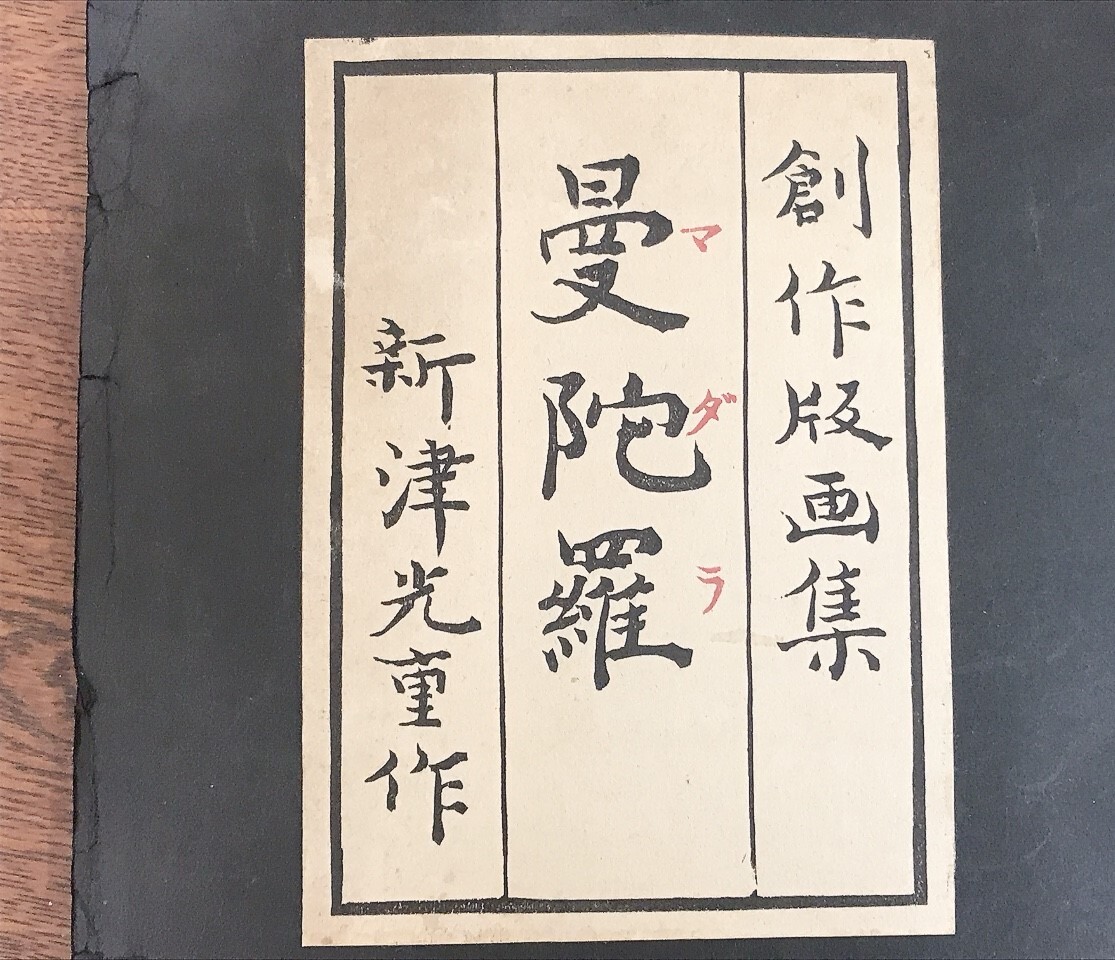 創作版画集
曼陀羅
マダラ
新津光重作